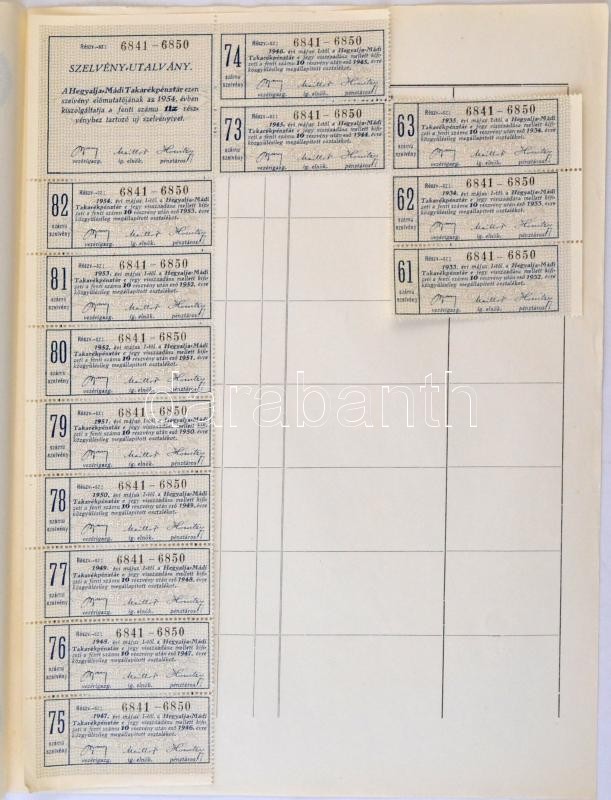 Részv.-sz: 6841-6850
SZELVÉNY-UTALVÁNY.
A Hegyalja-Mádi Takarékpénztár ezen
szelvény előmutatójának az 1954. évben
kiszolgáltatja a fenti számu tiz rész-
vényhez tartozó uj szelvényivet.
vezérigazg. ig. elnök. pénztáros
74
számu
szelvény
Részv.-sz: 6841-6850
1946. évi május 1-től a Hegyalja-Mádi
Takarékpénztár e jegy visszaadása mellett kifi-
zeti a fenti számu 10 részvény után eső 1945. évre
közgyülésileg megállapított osztaléket.
vezérigazg. ig. elnök. pénztáros
73
számu
szelvény
Részv.-sz: 6841-6850
1945. évi május 1-től a Hegyalja-Mádi
Takarékpénztár e jegy visszaadása mellett kifi-
zeti a fenti számu 10 részvény után eső 1944. évre
közgyülésileg megállapított osztaléket.
vezérigazg. ig. elnök. pénztáros
63
számu
szelvény
Részv.-sz: 6841-6850
1935. évi május 1-től a Hegyalja-Mádi
Takarékpénztár e jegy visszaadása mellett kifi-
zeti a fenti számu 10 részvény után eső 1934. évre
közgyülésileg megállapított osztaléket.
vezérigazg. ig. elnök. pénztáros
62
számu
szelvény
Részv.-sz: 6841-6850
1934. évi május 1-től a Hegyalja-Mádi
Takarékpénztár e jegy visszaadása mellett kifi-
zeti a fenti számu 10 részvény után eső 1933. évre
közgyülésileg megállapított osztaléket.
vezérigazg. ig. elnök. pénztáros
61
számu
szelvény
Részv.-sz: 6841-6850
1933. évi május 1-től a Hegyalja-Mádi
Takarékpénztár e jegy visszaadása mellett kifi-
zeti a fenti számu 10 részvény után eső 1932. évre
közgyülésileg megállapított osztaléket.
vezérigazg. ig. elnök. pénztáros
82
számu
szelvény
Részv.-sz: 6841-6850
1954. évi május 1-től a Hegyalja-Mádi
Takarékpénztár e jegy visszaadása mellett kifi-
zeti a fenti számu 10 részvény után eső 1953. évre
közgyülésileg megállapított osztaléket.
vezérigazg. ig. elnök. pénztáros
81
számu
szelvény
Részv.-sz: 6841-6850
1953. évi május 1-től a Hegyalja-Mádi
Takarékpénztár e jegy visszaadása mellett kifi-
zeti a fenti számu 10 részvény után eső 1952. évre
közgyülésileg megállapított osztaléket.
vezérigazg. ig. elnök. pénztáros
80
számu
szelvény
Részv.-sz: 6841-6850
1952. évi május 1-től a Hegyalja-Mádi
Takarékpénztár e jegy visszaadása mellett kifi-
zeti a fenti számu 10 részvény után eső 1951. évre
közgyülésileg megállapított osztaléket.
vezérigazg. ig. elnök. pénztáros
darabanth
79
számu
szelvény
Részv.-sz: 6841-6850
1951. évi május 1-től a Hegyalja-Mádi
Takarékpénztár e jegy visszaadása mellett kifi-
zeti a fenti számu 10 részvény után eső 1950. évre
közgyülésileg megállapított osztaléket.
vezérigazg. ig. elnök. pénztáros
78
számu
szelvény
Részv.-sz: 6841-6850
1950. évi május 1-től a Hegyalja-Mádi
Takarékpénztár e jegy visszaadása mellett kifi-
zeti a fenti számu 10 részvény után eső 1949. évre
közgyülésileg megállapított osztaléket.
vezérigazg. ig. elnök. pénztáros
77
számu
szelvény
Részv.-sz: 6841-6850
1949. évi május 1-től a Hegyalja-Mádi
Takarékpénztár e jegy visszaadása mellett kifi-
zeti a fenti számu 10 részvény után eső 1948. évre
közgyülésileg megállapított osztaléket.
vezérigazg. ig. elnök. pénztáros
76
számu
szelvény
Részv.-sz: 6841-6850
1948. évi május 1-től a Hegyalja-Mádi
Takarékpénztár e jegy visszaadása mellett kifi-
zeti a fenti számu 10 részvény után eső 1947. évre
közgyülésileg megállapított osztaléket.
vezérigazg. ig. elnök. pénztáros
75
számu
szelvény
Részv.-sz: 6841-6850
1947. évi május 1-től a Hegyalja-Mádi
Takarékpénztár e jegy visszaadása mellett kifi-
zeti a fenti számu 10 részvény után eső 1946. évre
közgyülésileg megállapított osztaléket.
vezérigazg. ig. elnök. pénztáros